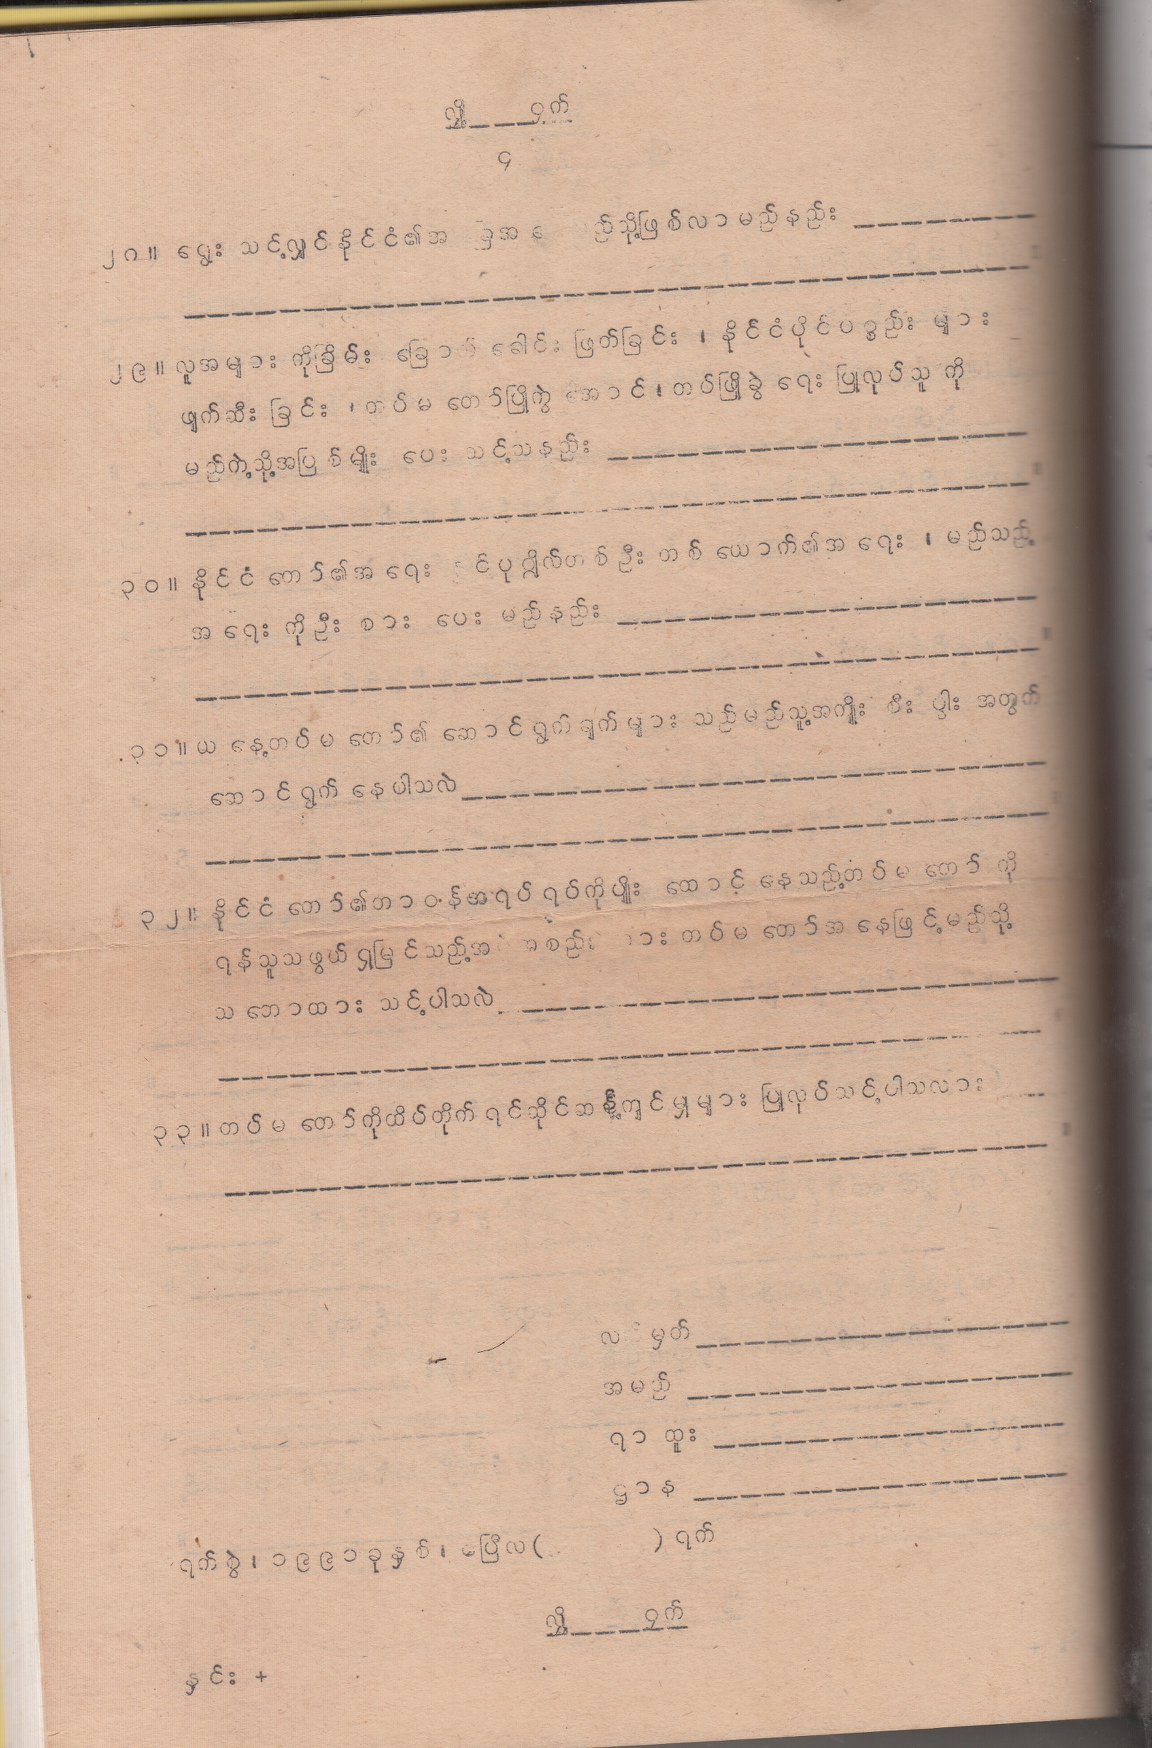 လျှို့____ဝှက်
၄
၂၈။ ရွေး သင့်လျှင်နိုင်ငံ၏အ ည်သို့ဖြစ်လာမည်နည်း ________
၂၉။ လူအများ ကိုခြိမ်း ခြောက် ခေါင်း ဖြတ်ခြင်း ၊ နိုင်ငံပိုင်ပစ္စည်း များ
ဖျက်ဆီး ခြင်း ၊ တပ်မ တော်ပြိုကွဲ အောင်၊ တပ်ဖြိုခွဲ ရေး ပြုလုပ်သူ ကို
မည်ကဲ့သို့အပြစ်မျိုး ပေး သင့်သနည်း ________
၃၀။ နိုင်ငံ တော်၏အ ရေး နှင့်ပုဂ္ဂိုလ်တစ်ဦး တစ် ယောက်၏အ ရေး ၊ မည်သည့်
အ ရေး ကိုဦး စား ပေး မည်နည်း ________
၃၁။ ယ နေ့တပ်မ တော်၏ ဆောင်ရွက်ချက်များ သည်မည်သူ့အကျိုး စီး ပွါး အတွက်
ဆောင်ရွက် နေပါသလဲ ________
၃၂။ နိုင်ငံ တော်၏တာဝန်အရပ်ရပ်ကို ထောင့် နေသည့်တပ်မ တော် ကို
ရန်သူသဖွယ်ရှုမြင်သည့်အ အစည်း တပ်မ တော်အ နေဖြင့်မည်သို့
သ ဘောထား သင့်ပါသလဲ ________
၃၃။ တပ်မ တော်ကိုထိပ်တိုက်ရင်ဆိုင်ဆန့်ကျင်မှုများ ပြုလုပ်သင့်ပါသလား ____
လက်မှတ် ________
အမည် ________
ရာ ထူး ________
ဌာန ________
ရက်စွဲ ၊ ၁၉၉၁ ခုနှစ် ၊ ဧပြီလ ( ) ရက်
လျှို့____ဝှက်
နှင်း +